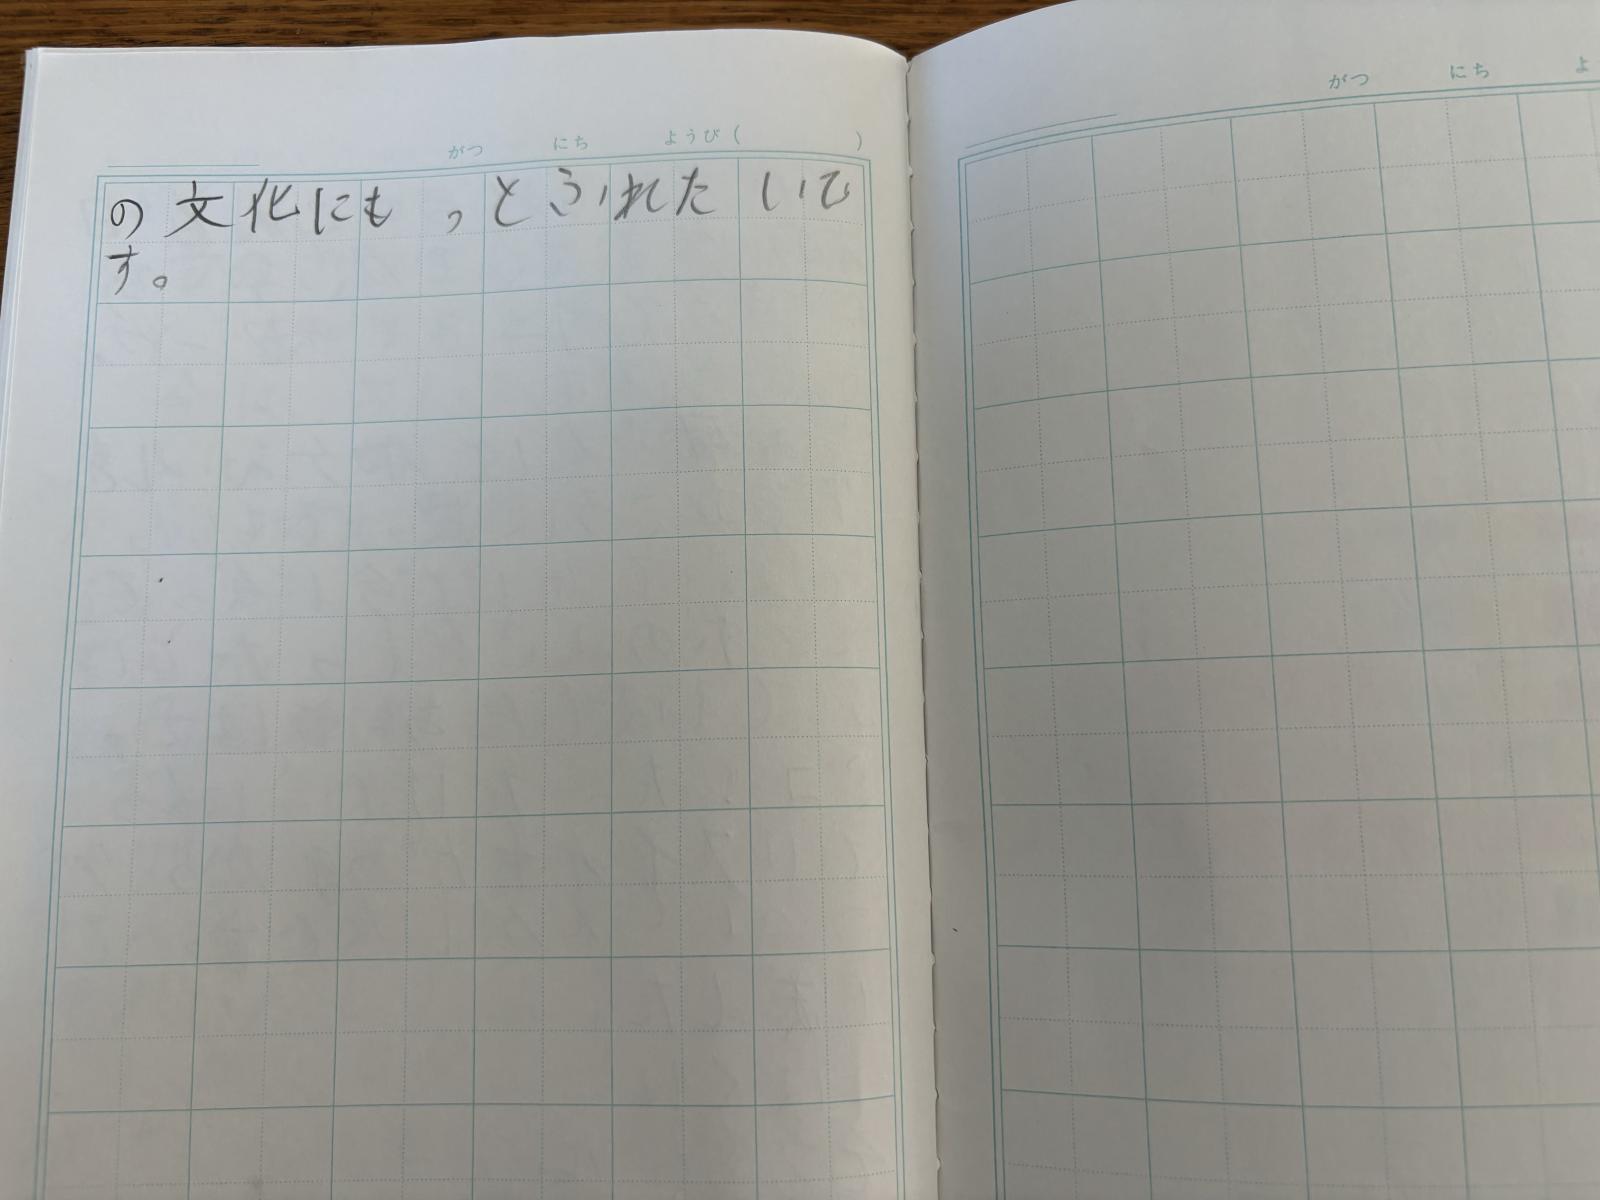 がつ にち ようび ( )
の文化にもっとふれたいで
す。
がつ にち よ